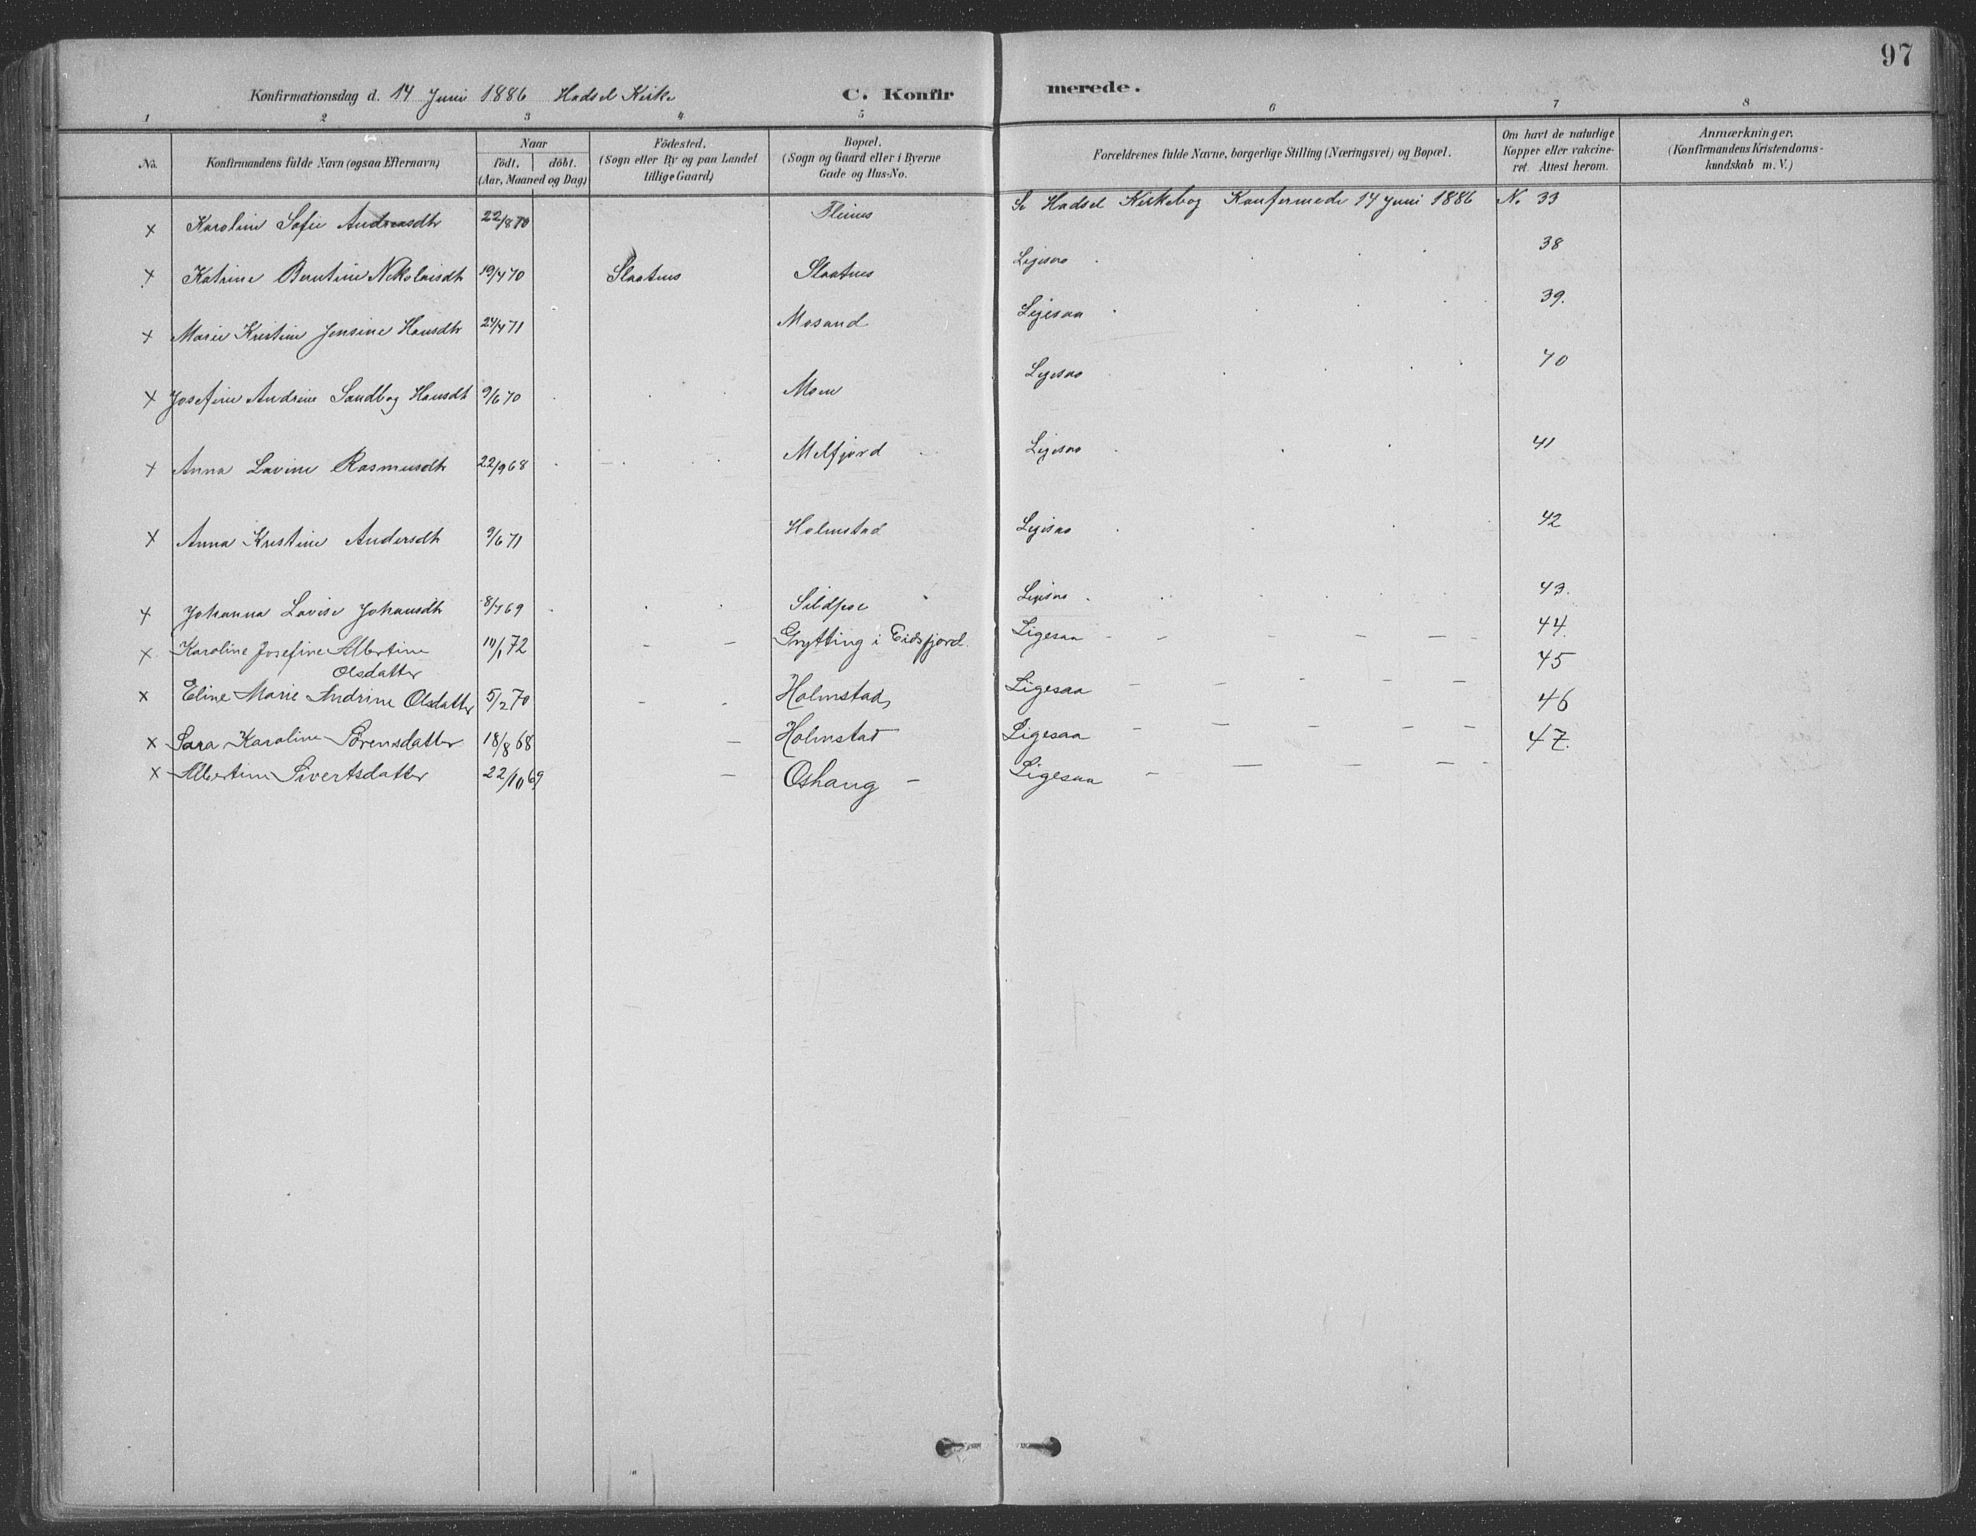 97
Konfirmationsdag d. 14 Juni 1886 Hadsel Kirke C. Konfir merede.
1 2 3 4 5 6 7 8
No. Konfirmandens fulde Navn (ogsaa Efternavn) Naar födt. döbt. (Aar, Maaned og Dag) Födested. (Sogn eller By og paa Landet tillige Gaard) Bopæl. (Sogn og Gaard eller i Byerne Gade og Hus-No. Forældrenes fulde Navne, borgerlige Stilling (Næringsvei) og Bopæl. Om havt de naturlige Kopper eller vakcineret. Attest herom. Anmærkninger. (Konfirmandens Kristendomskundskab m. V.)
x Karoline Sofie Andreasdtr 22/8 70 Fleines Se Hadsel Kirkebog Konfermede 14 Juni 1886 No 33
x Katrine Berntine Nikolaisdtr 10/4 70 Slaatnes Slaatnes Ligesaa 38
x Marie Kristine Jensine Hansdtr 24/4 71 Mosand Ligesaa 39.
x Josefine Andrine Sandbog Hansdtr 9/6 70 Moen Ligesaa 40
x Anna Lavine Rasmusdtr 22/9 68 Melfjord Ligesaa 41
x Anna Kristine Andersdtr 9/6 71 Holmstad Ligesaa 42
x Johanna Lovise Johansdtr 8/7 69 Sildpol Ligesaa 43.
x Karoline Josefine Albertine Olsdatter 10/1 72 - - Grytting i Eidsfjord. Ligesaa - - - - - 44.
x Eline Marie Andrine Olsdatter 5/2 70 - - Holmstad Ligesaa - - - - - 45
x Sara Karoline Sörensdatter 18/8 68 - Holmstad Ligesaa - - - - - 46
x Albertine Sivertsdatter 22/10 69 - Oshaug - Ligesaa - - - - - 47.